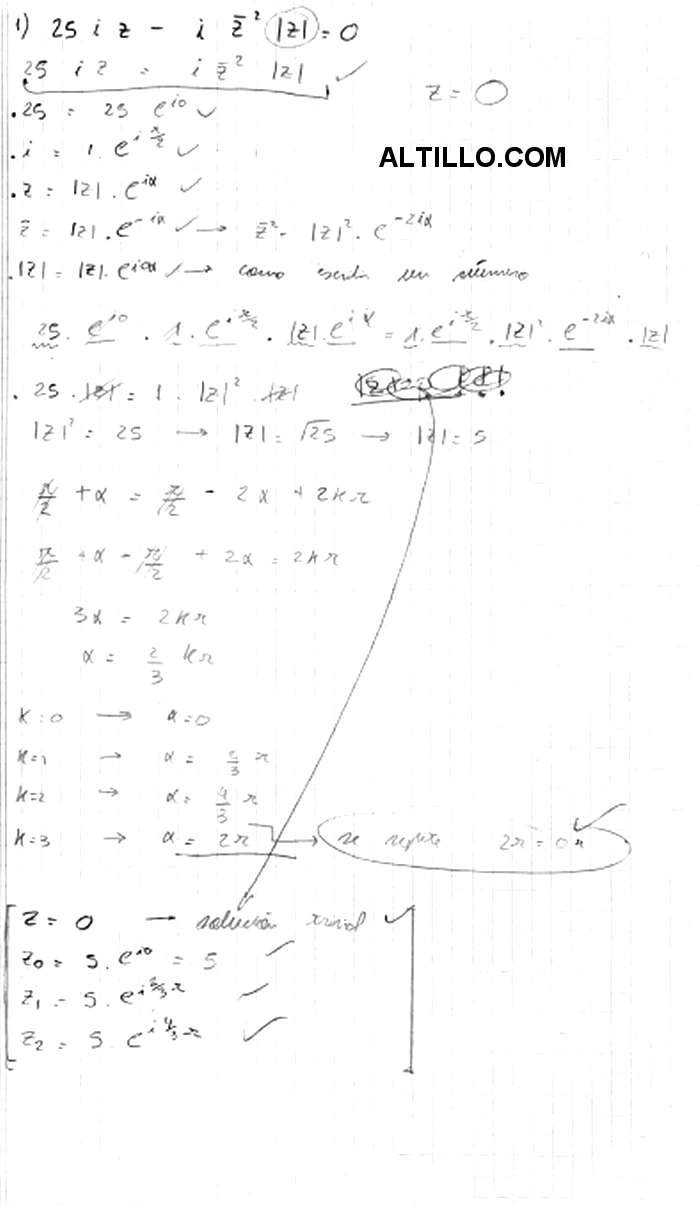 1) 25 i z - i z̄² |z| = 0
25 i z = i z̄² |z| ✓
z = 0
.25 = 25 e^{i0} ✓
ALTILLO.COM
.i = 1. e^{i π/2} ✓
.z = |z| . e^{iα} ✓
z̄ = |z| . e^{-iα} ✓ → z̄² = |z|² . e^{-2iα}
.|z| = |z|. e^{i0} ✓ → como un número
25. e^{i0} . 1. e^{i π/2} . |z|. e^{iα} = 1. e^{i π/2} . |z|² . e^{-2iα} . |z|
. 25 . |z| = 1 . |z|² . |z|
|z|² = 25 → |z| = √25 → |z| = 5
π/2 + α = π/2 - 2α + 2kπ
π/2 + α - π/2 + 2α = 2kπ
3α = 2kπ
α = 2/3 kπ
k=0 → α=0
k=1 → α = 2/3 π
k=2 → α = 4/3 π
k=3 → α = 2π → se repite 2π = 0π ✓
z = 0 → solución trivial ✓
z₀ = 5. e^{i0} = 5 ✓
z₁ = 5. e^{i 2/3 π} ✓
z₂ = 5. e^{i 4/3 π} ✓